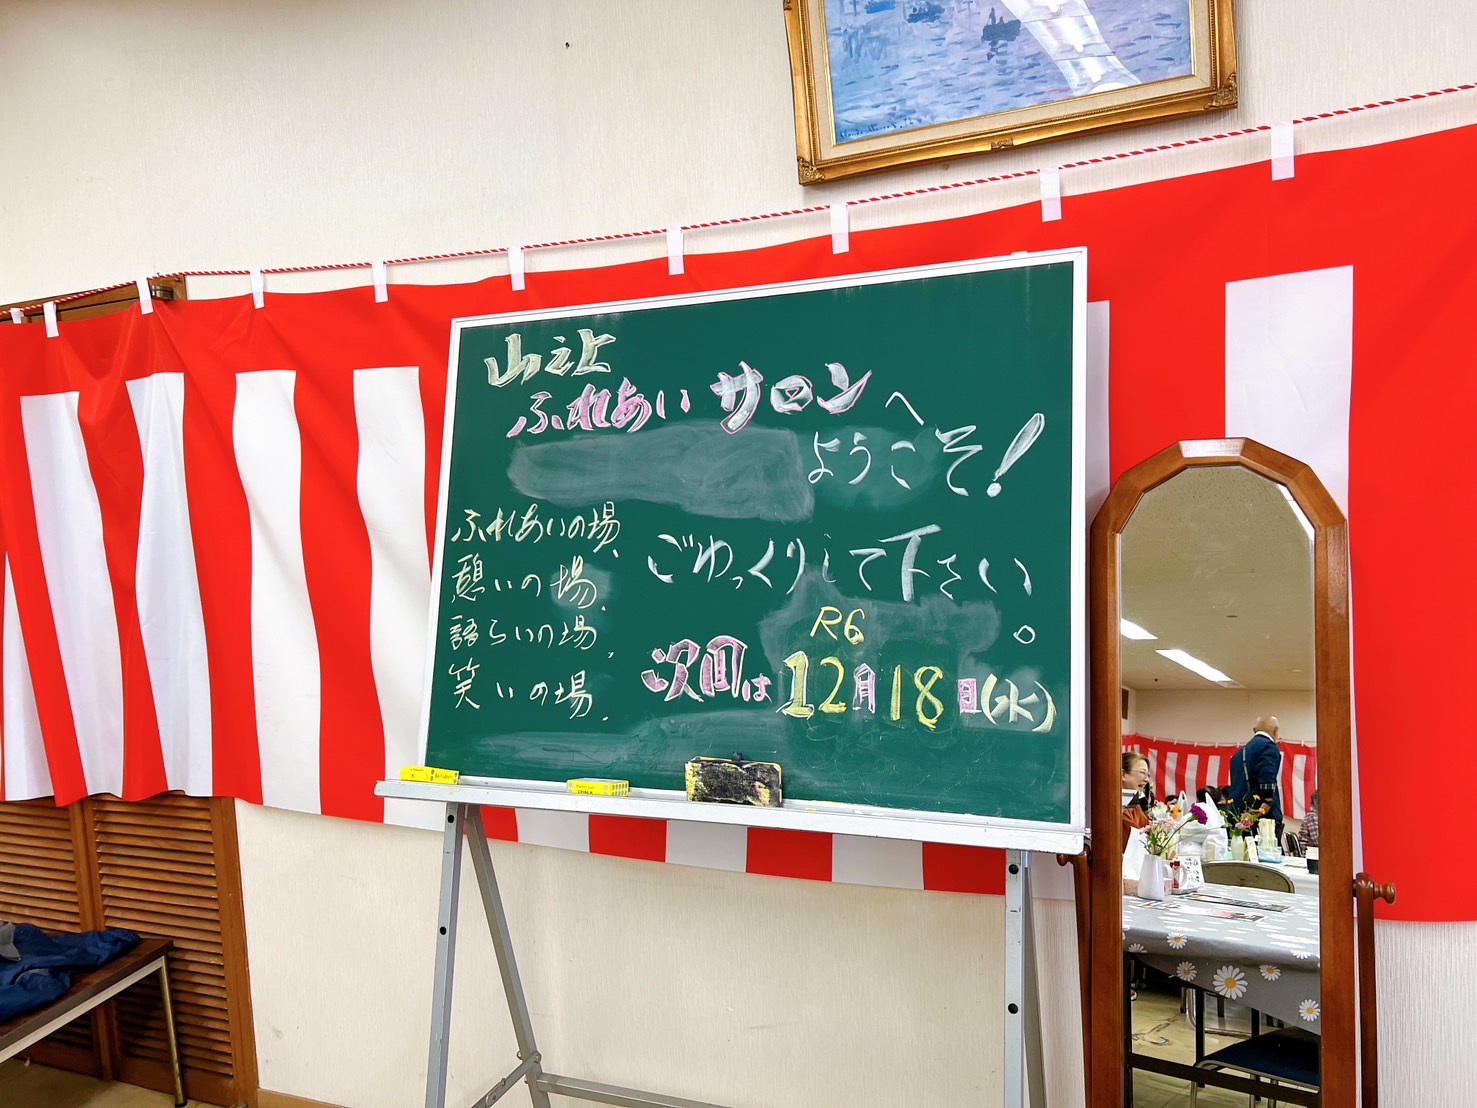 山之上
ふれあいサロンへ
ようこそ!
ふれあいの場、
憩いの場、
語らいの場、
笑いの場、
ごゆっくりして下さい。
R6
次回は12月18日(水)
CHALK